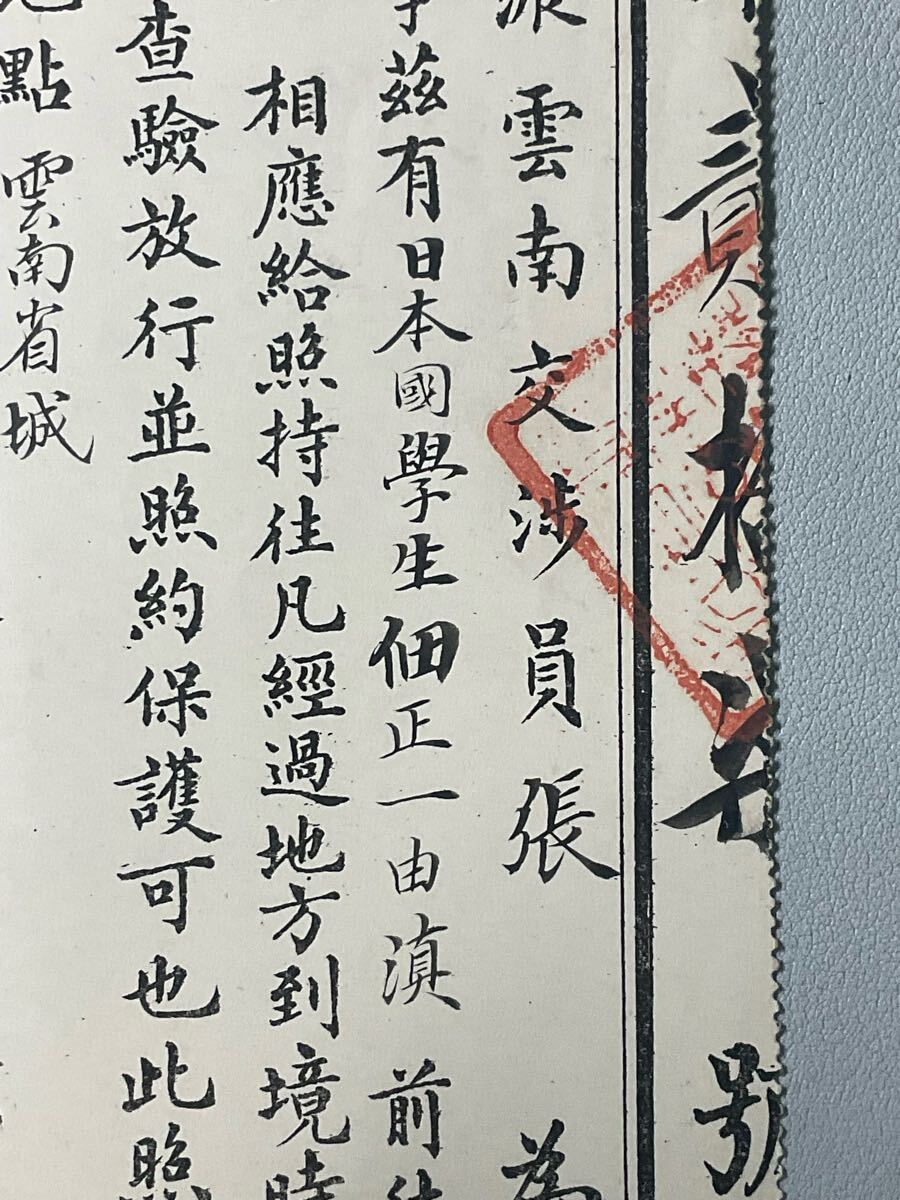 號
派雲南交涉員張 為
茲有日本國學生佃正一由滇 前往
相應給照持往凡經過地方到境時
查驗放行並照約保護可也此照
點 雲南省城